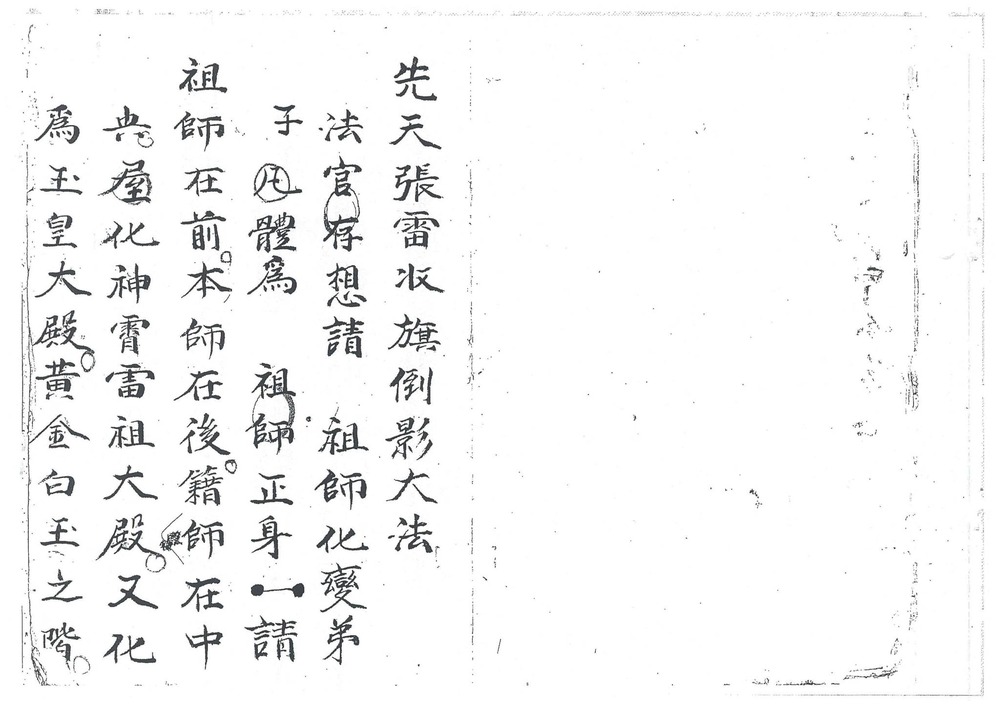 先天張雷收旗倒影大法
法官存想請 祖師化變弟
子凡體爲 祖師正身一請
祖師在前本師在後籍師在中
典屋化神霄雷祖大殿又化
爲玉皇大殿黃金白玉之階